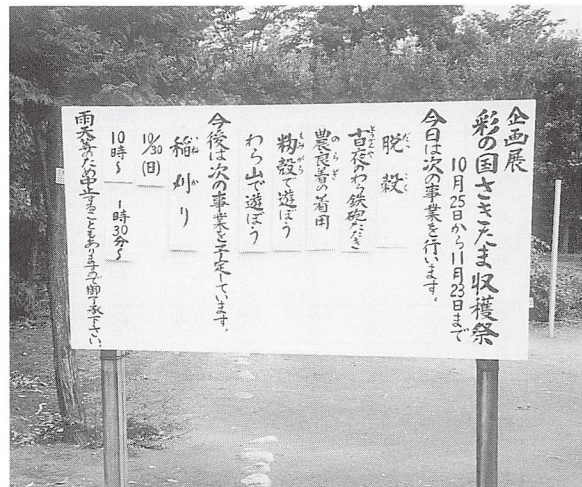 企画展
彩の国さきたま収穫祭
10月25日から11月23日まで
今日は次の事業を行います。
だっこく
脱穀
とおかんや
十日夜のわら鉄砲たたき
のらぎ
農良着の着用
もみがら
籾殻で遊ぼう
わら山で遊ぼう
今後は次の事業を予定しています。
いねか
稲刈り
10/30(日)
10時〜 1時30分〜
雨天等のため中止することもありますので御了承下さい。